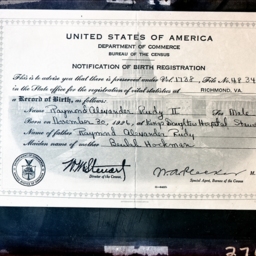 UNITED STATES OF AMERICA
DEPARTMENT OF COMMERCE
BUREAU OF THE CENSUS
NOTIFICATION OF BIRTH REGISTRATION
This is to advise you that there is preserved under Vol. 1738 File No. 4834
in the State office for the registration of vital statistics at RICHMOND, VA.
a Record of Birth, as follows:
Name Raymond Alexander Rudy II Sex Male
Born on November 30, 1926, at Kings Daughters Hospital
Name of father Raymond Alexander Rudy
Maiden name of mother Beulah Hockman
W. M. Steuart
Director of the Census
Special Agent, Bureau of the Census
M.